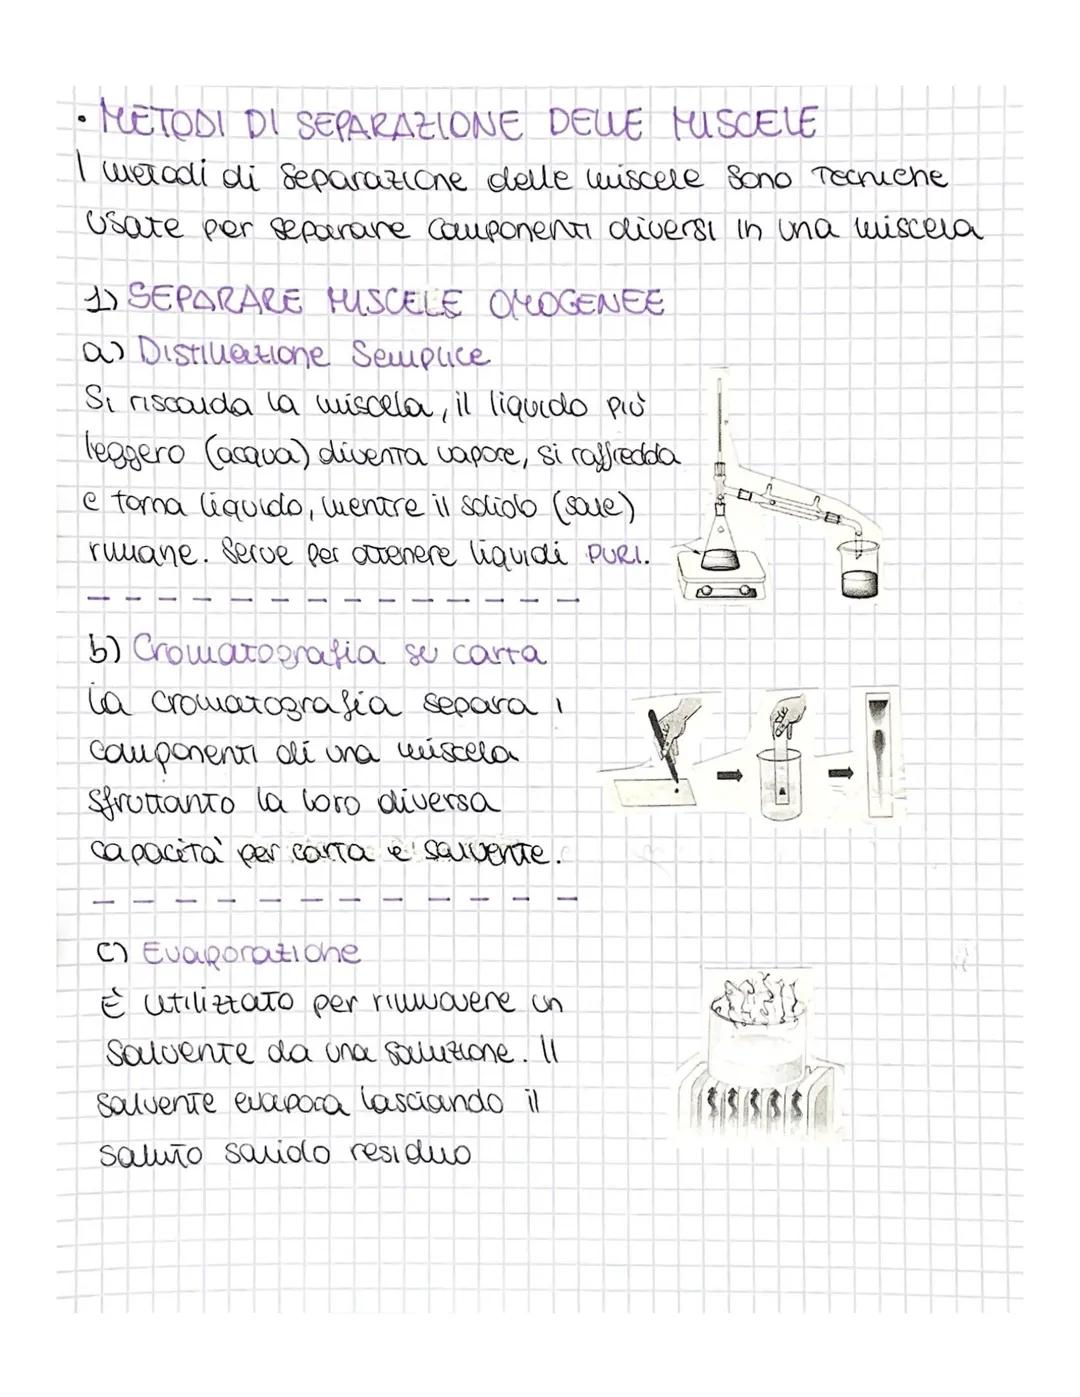 • METODI DI SEPARAZIONE DELLE MISCELE
I metodi di separazione delle miscele sono tecniche
usate per separare componenti diversi in una miscela
1) SEPARARE MISCELE OMOGENEE
a) Distillazione Semplice
Si riscalda la miscela, il liquido più
leggero (acqua) diventa vapore, si raffredda
e torna liquido, mentre il solido (sale)
rimane. Serve per ottenere liquidi PURI.
b) Cromatografia su carta
La cromatografia separa i
componenti di una miscela
sfruttanto la loro diversa
capacità per carta e solvente.
c) Evaporazione
È utilizzato per rimuovere un
solvente da una soluzione. Il
solvente evapora lasciando il
soluto solido residuo